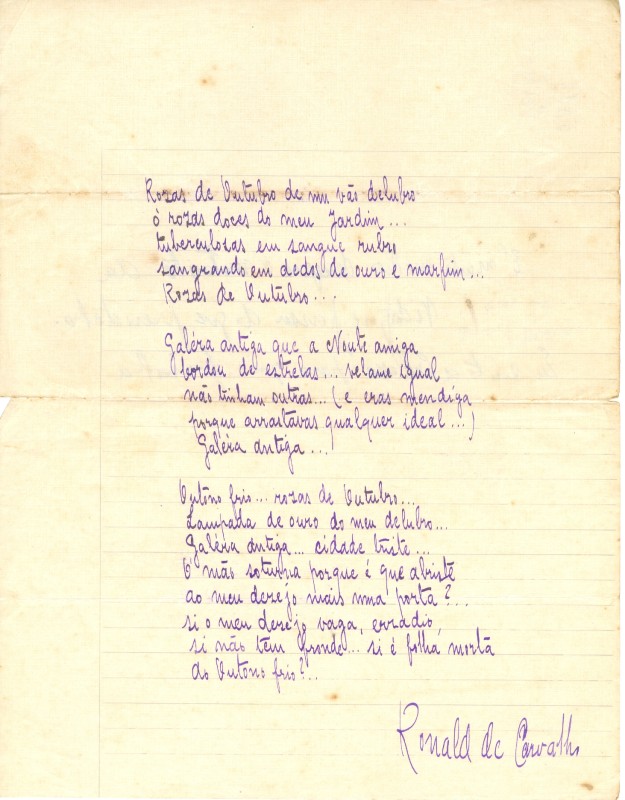 Rozas de Outubro de um vão delubro
ó rozas doces do meu Jardim...
tuberculozas em sangue rubro
sangrando em dedos de ouro e marfim...
Rozas de Outubro...
Galéra antiga que a Noute amiga
bordou de estrelas... velame igual
não tinham outras... (e eras mendiga
porque arrastavas qualquer ideal...)
Galéra antiga...
Outôno frio... rozas de Outubro...
Lampada de ouro do meu delubro...
Galéra antiga... cidade triste...
O' mão soturna porque é que abriste
ao meu dezejo mais uma porta?...
si o meu dezejo vaga, erradio,
si não tem fronde... si é folha morta
do Outôno frio?...
Ronald de Carvalho